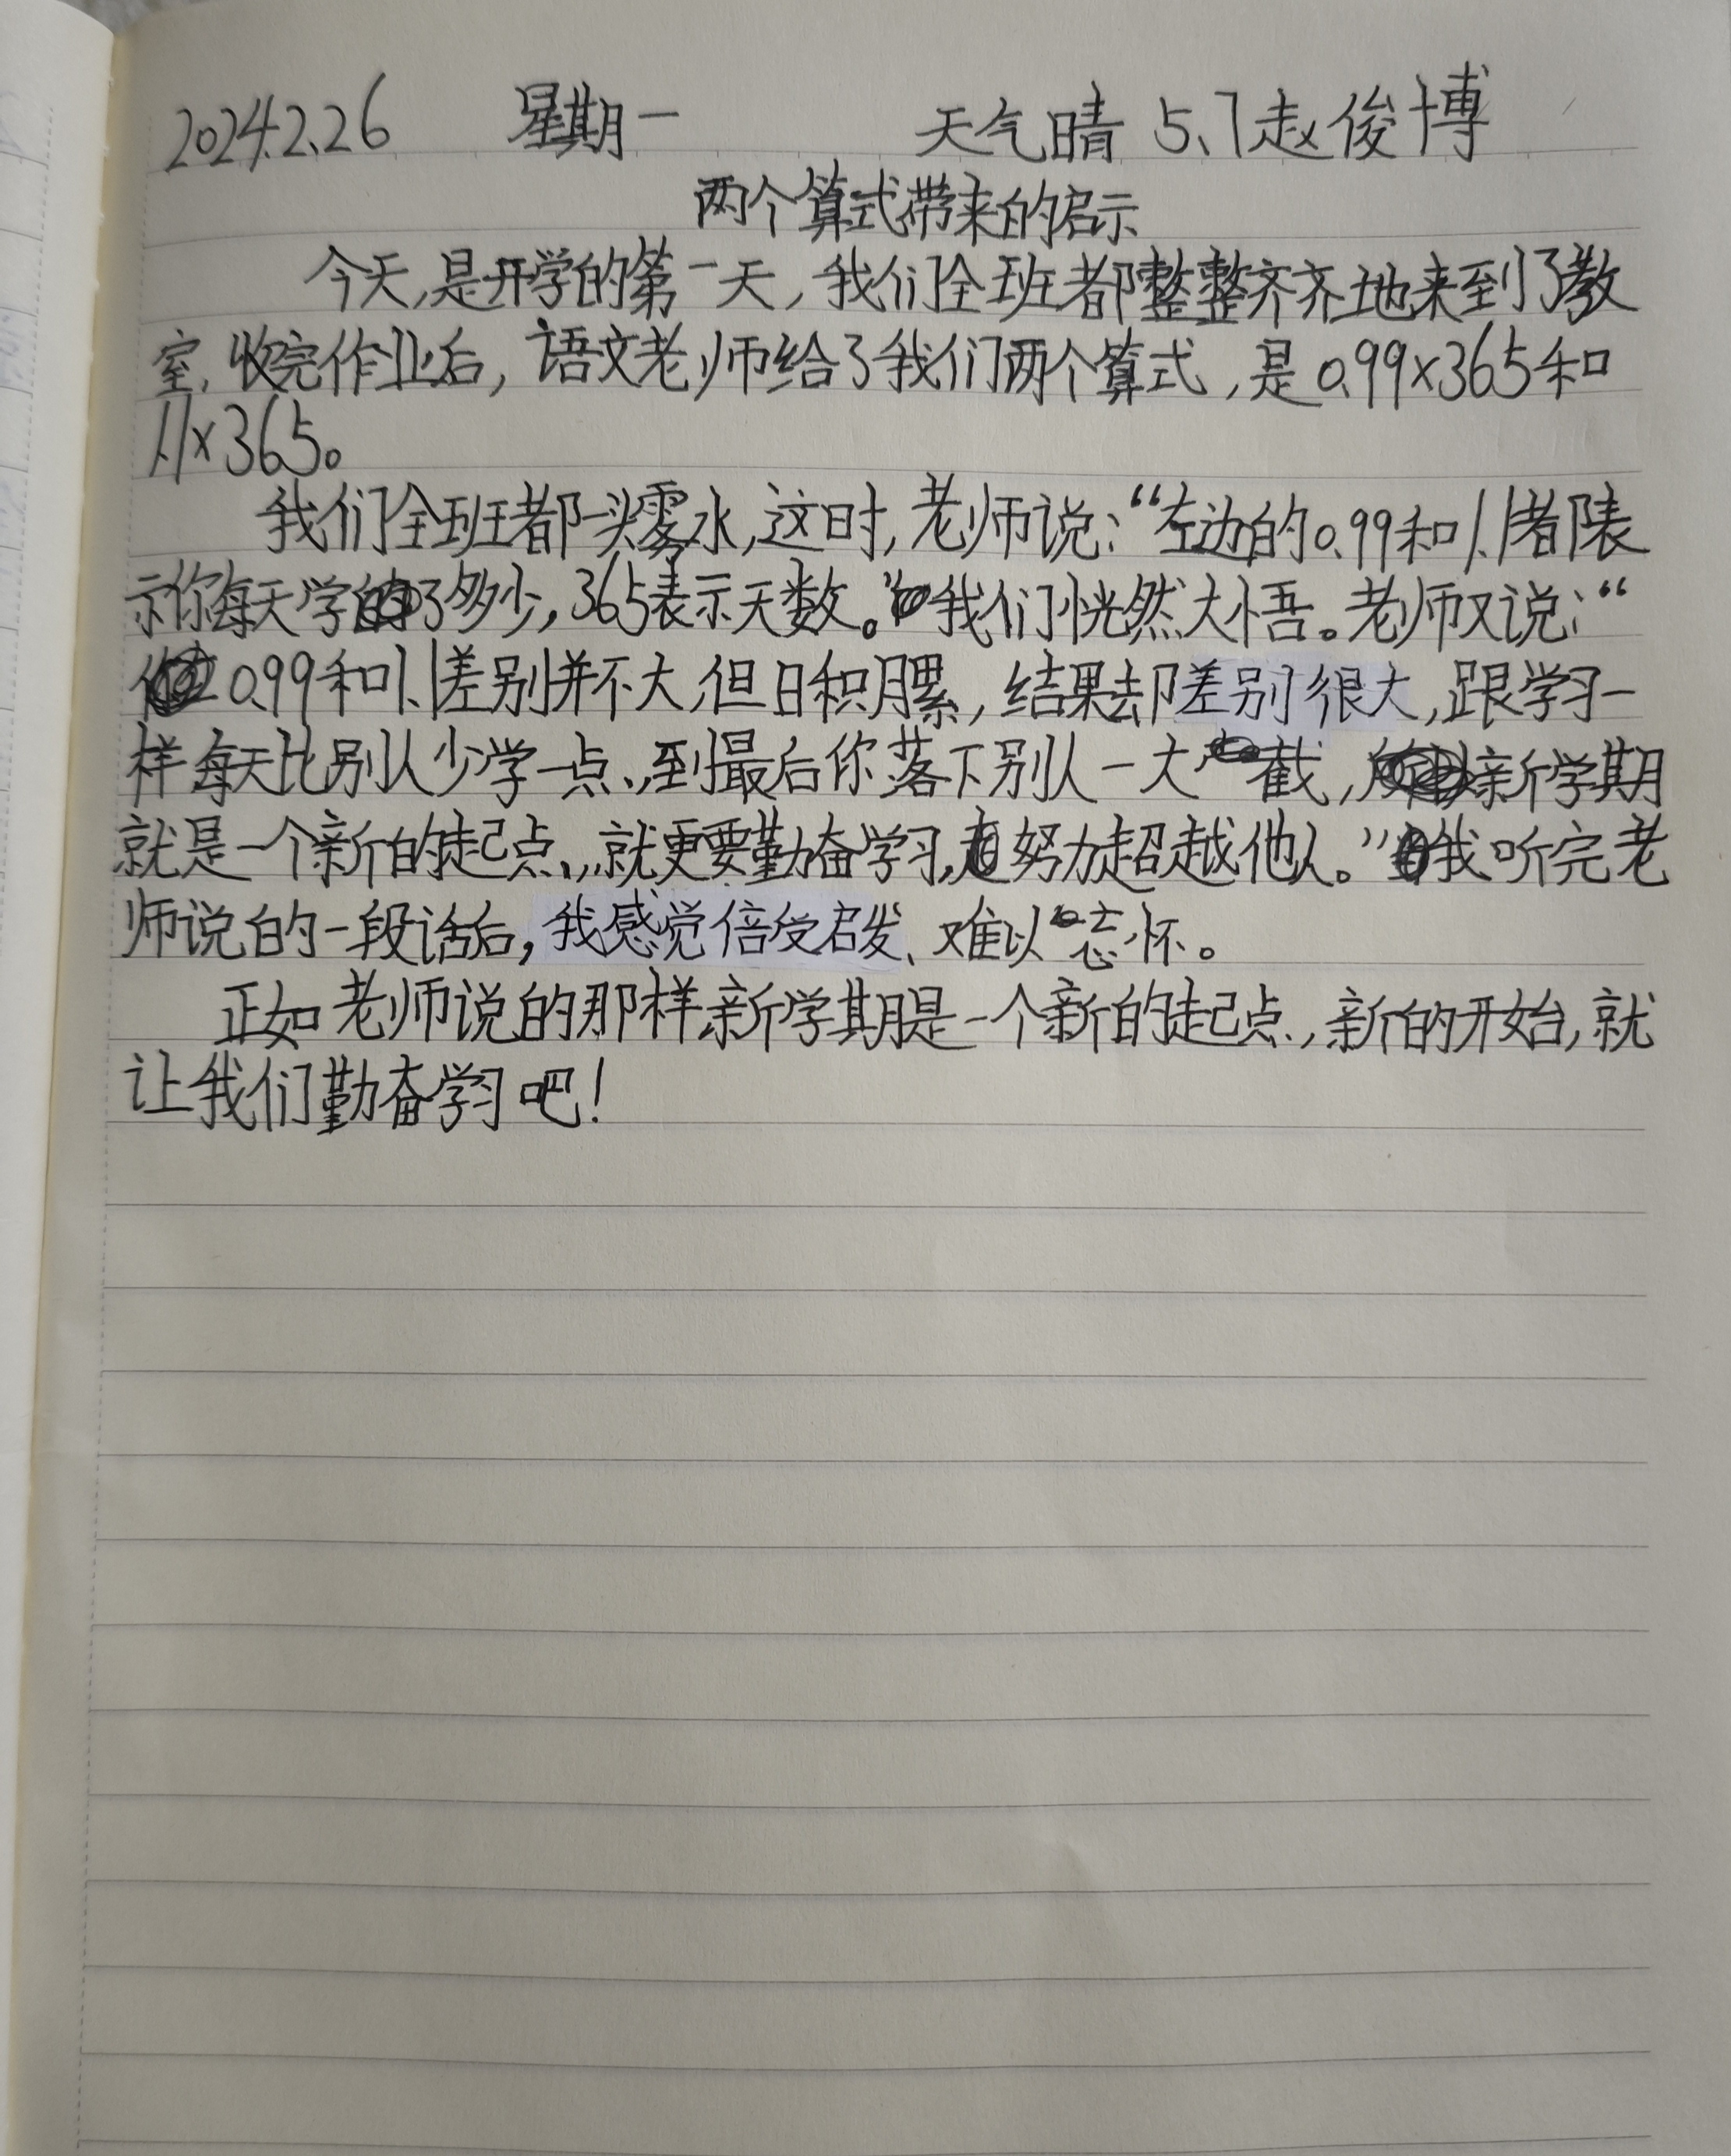 2024.2.26 星期一 天气晴 5.7赵俊博
两个算式带来的启示
今天,是开学的第一天,我们全班都整整齐齐地来到了教
室,收完作业后,语文老师给了我们两个算式,是0.99×365和
1.1×365。
我们全班都一头雾水,这时,老师说:“左边的0.99和1.1都表
示你每天学了多少,365表示天数。”我们恍然大悟。老师又说:“
0.99和1.1差别并不大,但日积月累,结果却差别很大,跟学习一
样每天比别人少学一点,到最后你落下别人一大截,新学期
就是一个新的起点,就更要勤奋学习,努力超越他人。”我听完老
师说的一段话后,我感觉倍受启发、难以忘怀。
正如老师说的那样新学期是一个新的起点,新的开始,就
让我们勤奋学习吧!